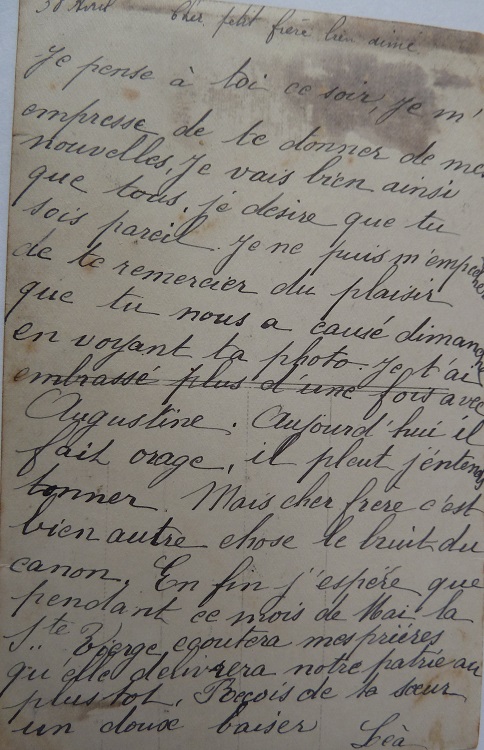 30 Avril Cher petit frère bien aimé
Je pense à toi ce soir, je m'
empresse de te donner de mes
nouvelles. Je vais bien ainsi
que tous, je desire que tu
sois pareil. Je ne puis m'empêcher
de te remercier du plaisir
que tu nous a causé dimanche
en voyant ta photo. Je t'ai
embrassé plus d'une fois avec
Augustine. Aujourd'hui il
fait orage, il pleut j'entends
tonner. Mais cher frere c'est
bien autre chose le bruit du
canon. En fin j'espére que
pendant ce mois de Mai la
Ste Vierge ecoutera mes prières
qu'elle delivrera notre patrie au
plus tot. Reçois de ta sœur
un doux baiser Léà